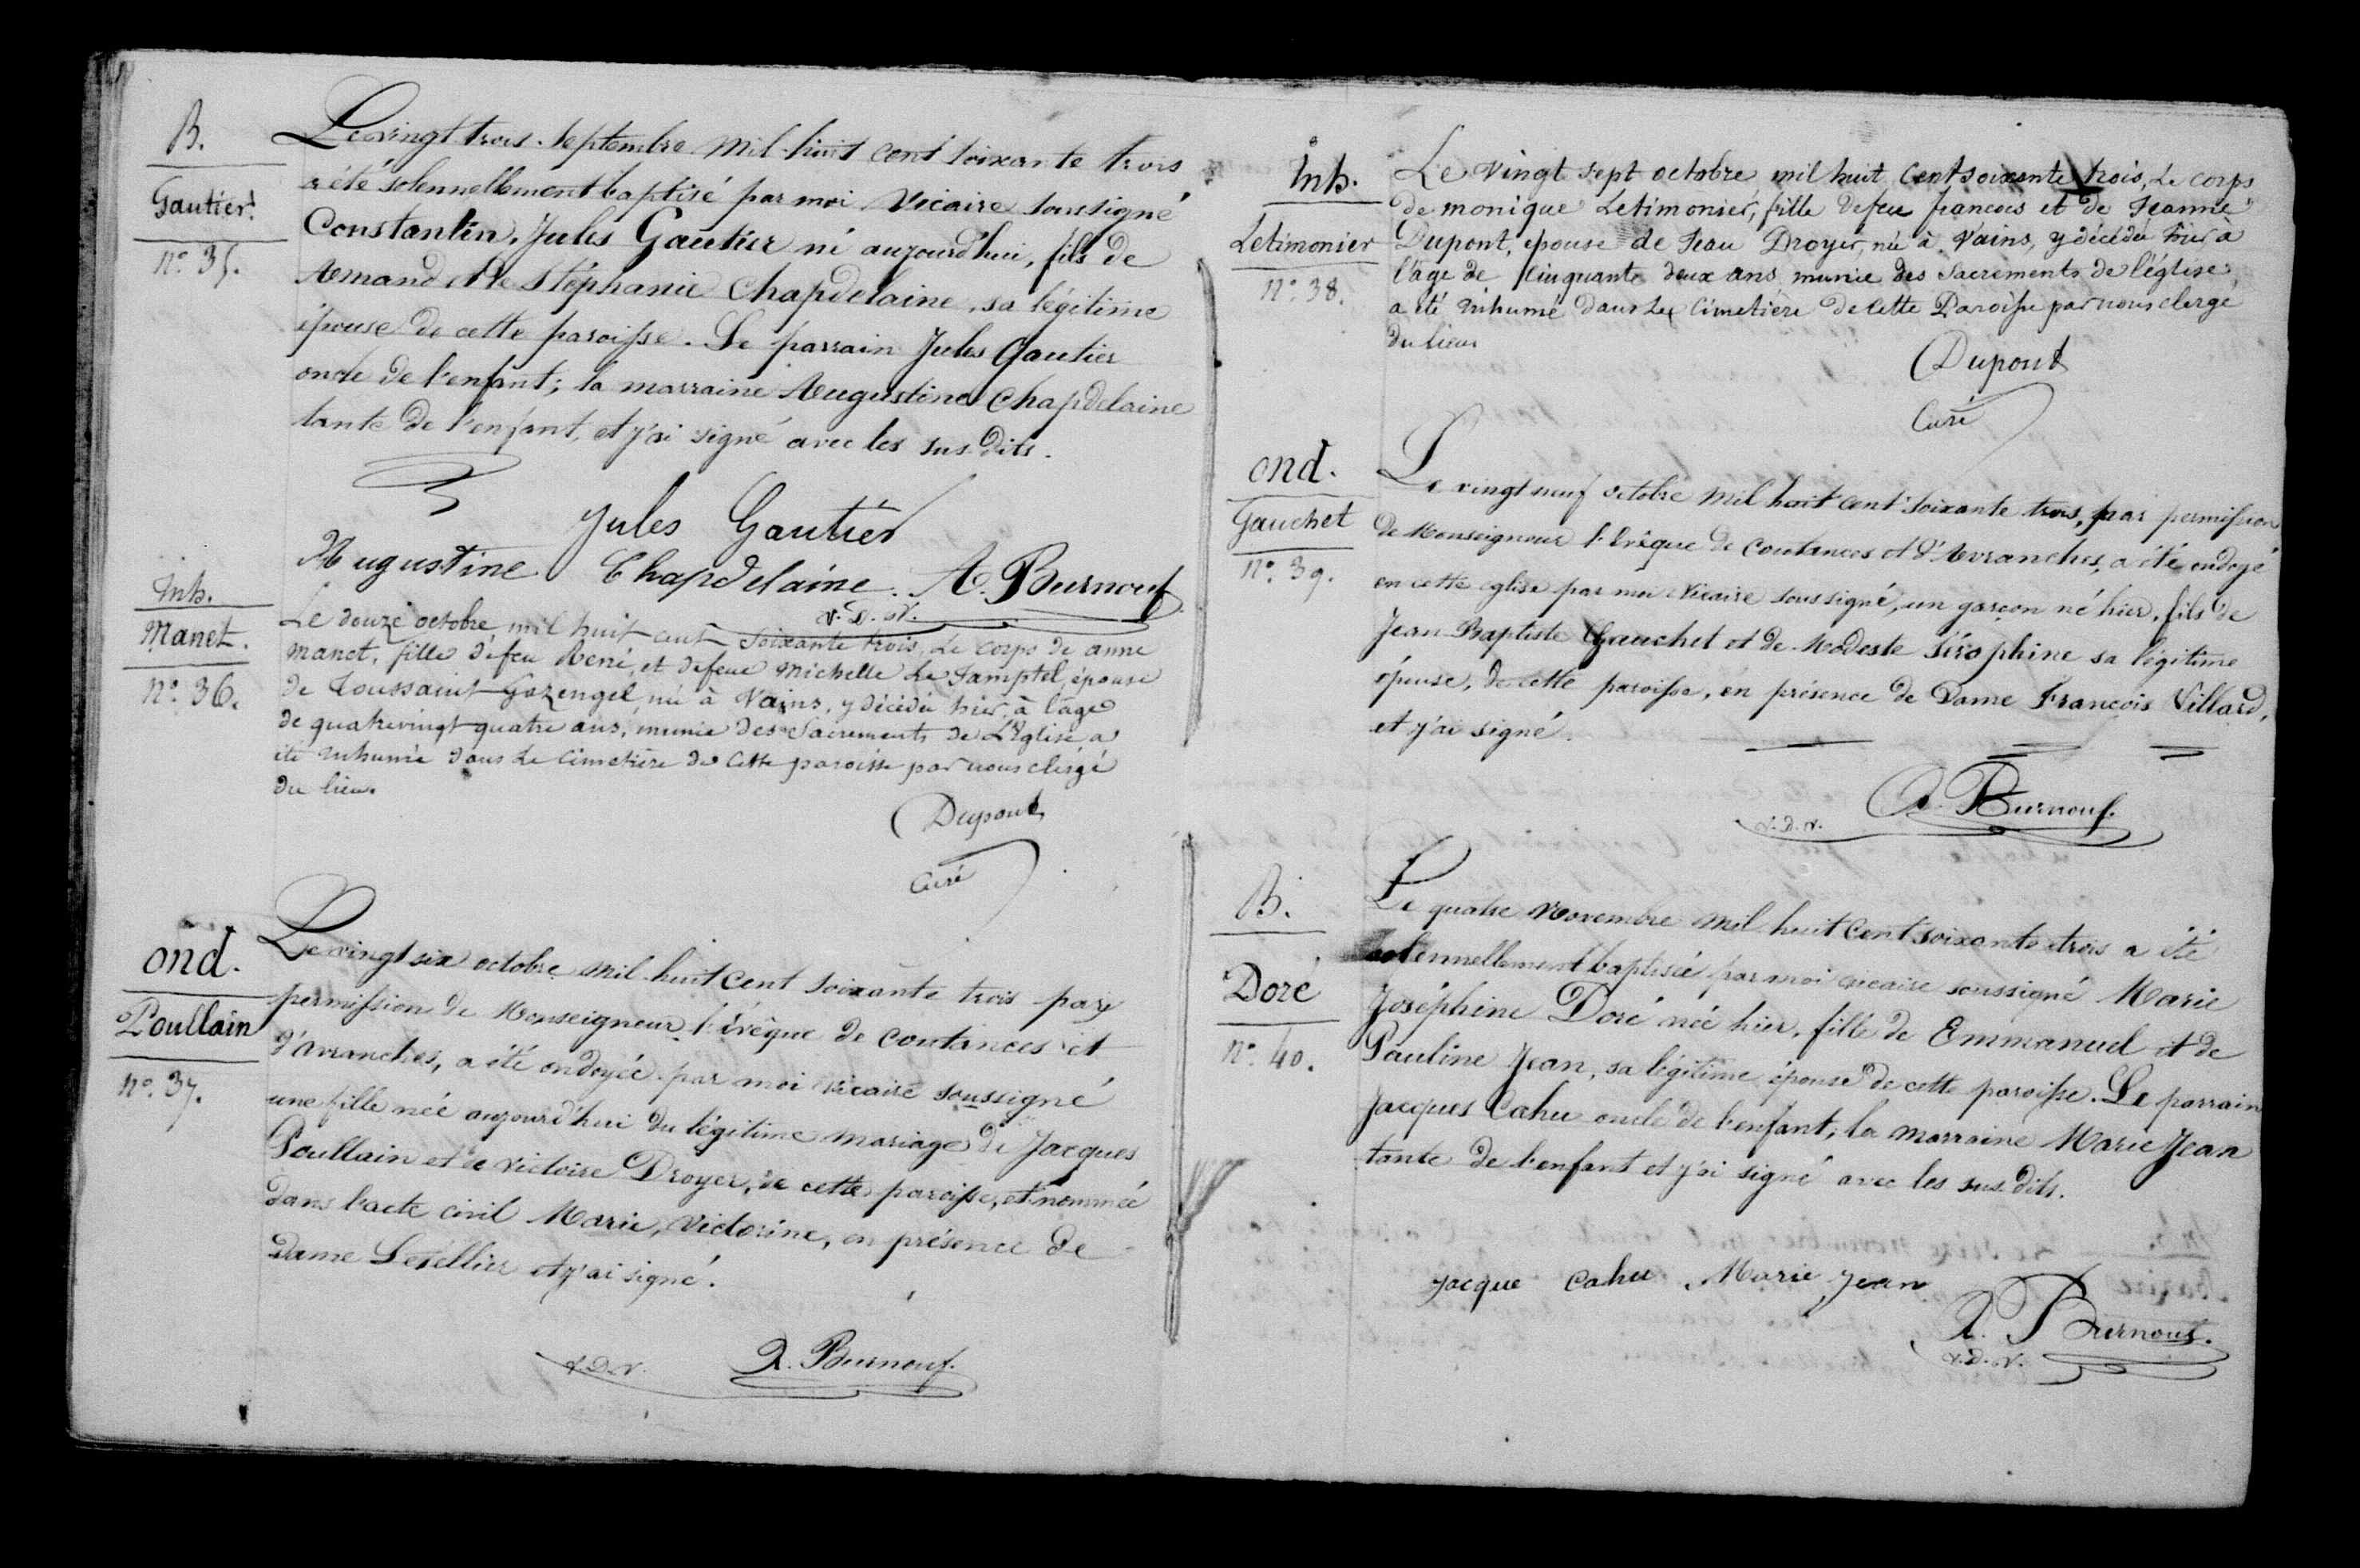 B.
Gautier.
N° 35.
Le vingt trois Septembre mil huit cent soixante trois
a été solennellement baptisé par moi Vicaire soussigné
Constantin, Jules Gautier né aujourd'hui, fils de
Armand et de Stéphanie Chapdelaine, sa légitime
épouse de cette paroisse. Le parrain Jules Gautier
oncle de l'enfant; la marraine Augustine Chapdelaine
tante de l'enfant, et j'ai signé avec les sus dits.
Jules Gautier
Augustine Chapdelaine. A. Burnouf
v. D. V.
Inh.
Manet.
N° 36.
Le douze octobre mil huit cent soixante trois, Le corps de anne
manet, fille de feu René, et de feue Michelle Le Jamptel, épouse
de Toussaint Gozengel, née à Vains, y décédée hier, à l'age
de quatrevingt quatre ans, munie des Sacrements de L'Eglise a
été inhumée dans Le Cimetière de Cette paroisse par nous clergé
du lieu.
Dupont
Curé
ond.
Poullain
N° 37.
Le vingt six octobre mil huit cent soixante trois par
permission de Monseigneur l'évêque de coutances et
d'avranches, a été ondoyée par moi vicaire soussigné
une fille née aujourd'hui du légitime mariage de Jacques
Poullain et de victoire Droyer, de cette paroisse, et nommée
dans l'acte civil Marie, Victorine, en présence de
Dame Letellier et j'ai signé.
v. D. v. A. Burnouf.
Inh.
Letimonier
N° 38.
Le vingt sept octobre mil huit cent soixante trois, Le corps
de monique Letimonier, fille de feu francois et de Jeanne
Dupont, épouse de Jean Droyer, née à Vains, y décédée hier a
l'age de cinquante deux ans munie des Sacrements de l'église
a été inhumé dans Le Cimetière de Cette Paroisse par nous clergé
du lieu
Dupont
Curé
ond.
Gauchet
N° 39.
Le vingt neuf octobre mil huit cent soixante trois, par permission
de Monseigneur l'Evêque de coutances et d'Avranches, a été ondoyé
en cette église par moi Vicaire soussigné, un garçon né hier, fils de
Jean Baptiste Gauchet et de Modeste Séraphine sa légitime
épouse, de cette paroisse, en présence de Dame François Villard,
et j'ai signé.
A. Burnouf.
v. D. v.
B.
Doré
N° 40.
Le quatre Novembre mil huit cent soixante trois a été
solennellement baptisée par moi vicaire soussigné Marie
Joséphine Doré née hier, fille de Emmanuel et de
Pauline Jean, sa légitime épouse de cette paroisse. Le parrain
Jacques Cahu oncle de l'enfant; la marraine Marie Jean
tante de l'enfant et j'ai signé avec les sus dits.
Jacque Cahu Marie Jean
A. Burnouf.
v. D. V.